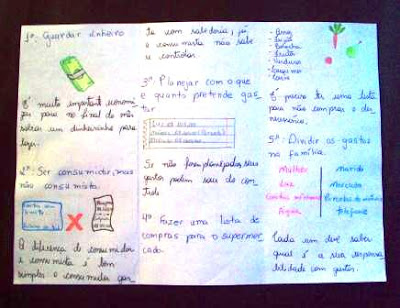 1º: Guardar dinheiro
É muito important economi
zar para no final do mês
sobrar um dinheirinho para
lazer.
2º: Ser consumidor, mas
não consumista.
A diferença do consumidor
e consumista é bem
simples o consumidor gas
ta com sabedoria, já
o consumista não sabe
se controlar.
3º: Planejar com o que
e quanto pretende gas
tar
Se não forem planejados seus
gastos podem sair do con
trole
4º Fazer uma lista de
compras para o supermer
cado.
- Arroz
- Feijão
- Bolacha
- Frutas
- Verduras
- Carne
É preciso ter uma lista
para não comprar o des
necessário.
5º: Dividir os gastos
na família.
Mulher
Luz
Água
Marido
Mercado
Telefone
Cada um deve saber
qual é a sua responsa
bilidade com gastos.